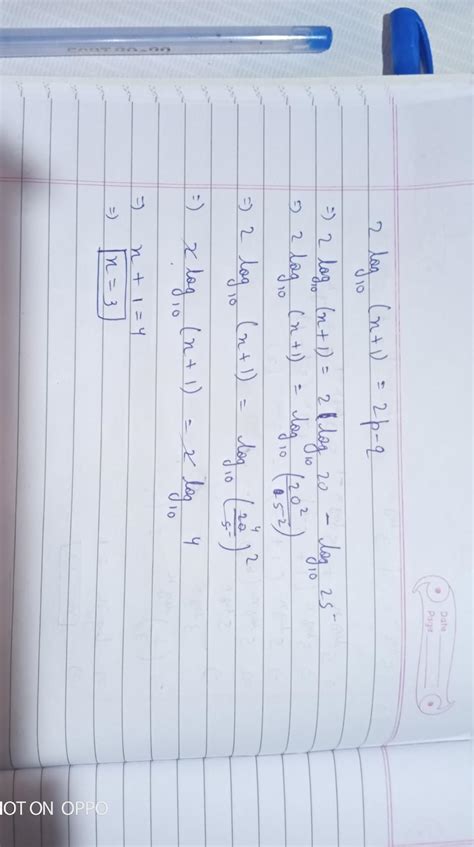 Date
Page
2 log₁₀ (x+1) = 2p-q
=) 2 log₁₀ (x+1) = 2 log₁₀ 20 - log₁₀ 25
=) 2 log₁₀ (x+1) = log₁₀ (20²/5²)
=) 2 log₁₀ (x+1) = log₁₀ (20/5)² 4
=) 2 log₁₀ (x+1) = 2 log₁₀ 4
=) x + 1 = 4
=) x = 3
HOT ON OPPO